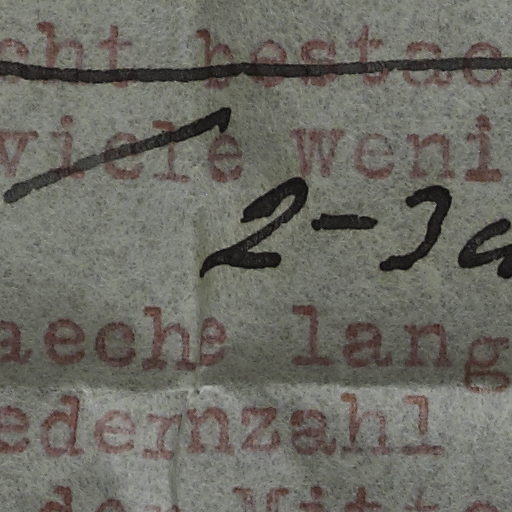 cht bestae
viele weni
2-3
aeche lang
edernzahl
der Mitte